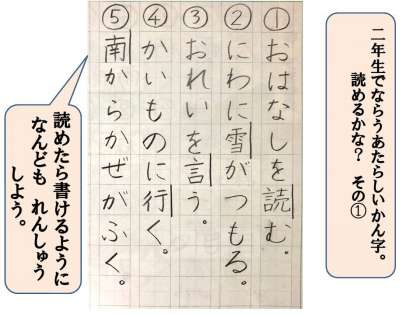 二年生でならうあたらしいかん字。
読めるかな？　その①
①おはなしを読む。
②にわに雪がつもる。
③おれいを言う。
④かいものに行く。
⑤南からかぜがふく。
読めたら書けるように
なんども れんしゅう
しよう。